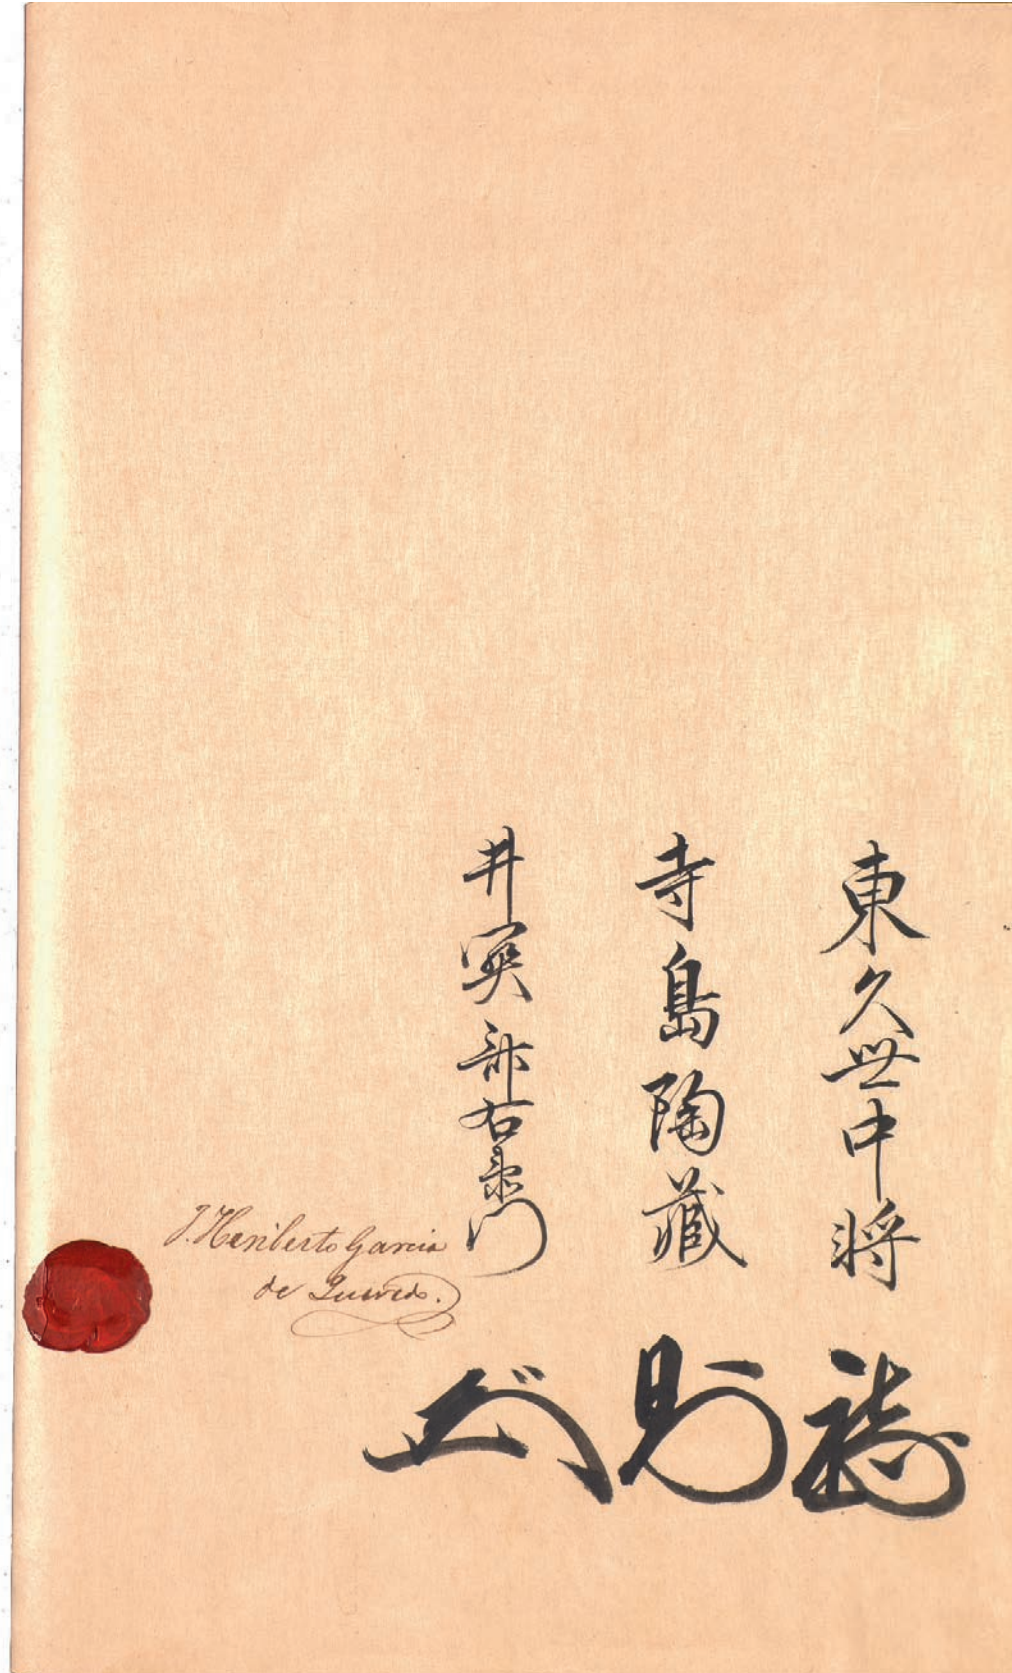 東久世中将
寺島陶藏
井関斎右衛門
J. Heriberto Garcia
de Quevedo.